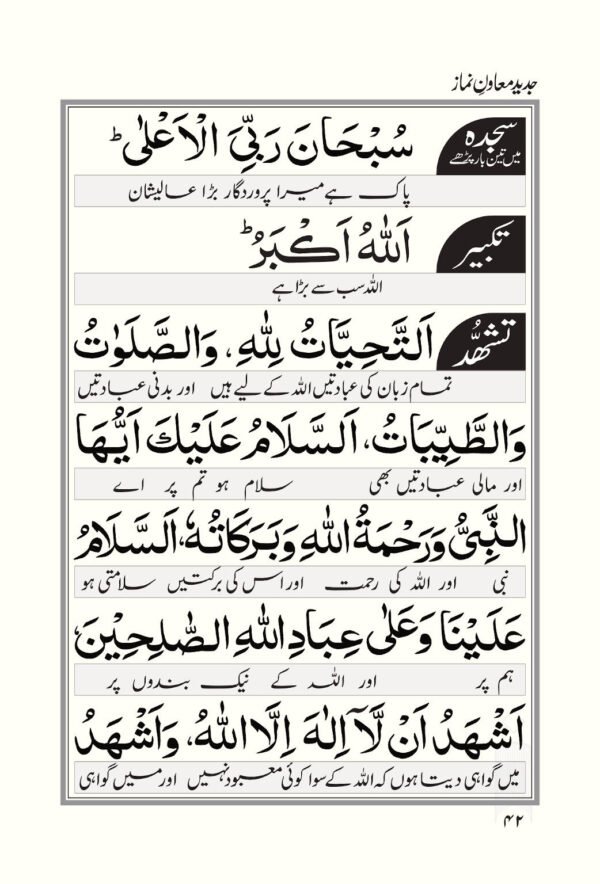 جدید معاونِ نماز
سجدہ
میں تین بار پڑھے
سُبْحَانَ رَبِّیَ الْاَعْلٰی ؕ
پاک ہے میرا پروردگار بڑا عالیشان
تکبیر
اَللّٰہُ اَکْبَرُ ؕ
اللہ سب سے بڑا ہے
تشہُّد
اَلتَّحِیَّاتُ لِلّٰہِ، وَالصَّلَوٰتُ
تمام زبان کی عبادتیں اللہ کے لیے ہیں اور بدنی عبادتیں
وَالطَّیِّبَاتُ، اَلسَّلَامُ عَلَیْكَ اَیُّهَا
اور مالی عبادتیں بھی سلام ہو تم پر اے
النَّبِیُّ وَرَحْمَةُ اللّٰہِ وَبَرَکَاتُہٗ، اَلسَّلَامُ
نبی اور اللہ کی رحمت اور اس کی برکتیں سلامتی ہو
عَلَیْنَا وَعَلٰی عِبَادِ اللّٰہِ الصّٰلِحِیْنَ،
ہم پر اور اللہ کے نیک بندوں پر
اَشْهَدُ اَنْ لَّاۤ اِلٰہَ اِلَّا اللّٰہُ، وَاَشْهَدُ
میں گواہی دیتا ہوں کہ اللہ کے سوا کوئی معبود نہیں اور میں گواہی
۴۲